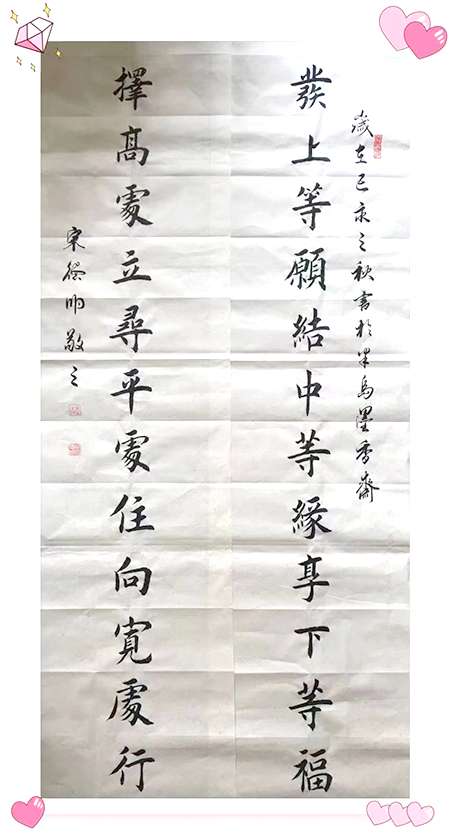 歲在己亥之秋書於半島墨香齋
發上等願結中等緣享下等福
擇高處立尋平處住向寬處行
宋德帅敬之